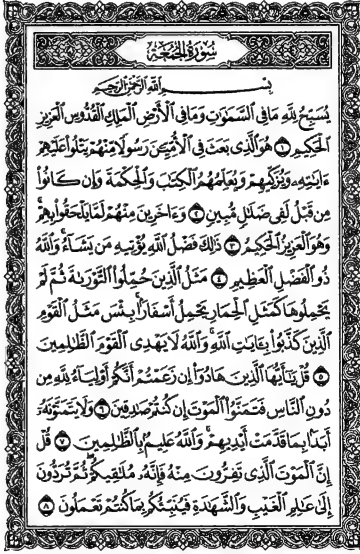 سُورَةُ الجُمُعَةِ
بِسْمِ اللَّهِ الرَّحْمَٰنِ الرَّحِيمِ
يُسَبِّحُ لِلَّهِ مَا فِي السَّمَٰوَٰتِ وَمَا فِي الْأَرْضِ الْمَلِكِ الْقُدُّوسِ الْعَزِيزِ
الْحَكِيمِ ١ هُوَ الَّذِي بَعَثَ فِي الْأُمِّيِّـۧنَ رَسُولًا مِّنْهُمْ يَتْلُوا۟ عَلَيْهِمْ
ءَايَٰتِهِۦ وَيُزَكِّيهِمْ وَيُعَلِّمُهُمُ الْكِتَٰبَ وَالْحِكْمَةَ وَإِن كَانُوا۟
مِن قَبْلُ لَفِي ضَلَٰلٍ مُّبِينٍ ٢ وَءَاخَرِينَ مِنْهُمْ لَمَّا يَلْحَقُوا۟ بِهِمْ ۚ
وَهُوَ الْعَزِيزُ الْحَكِيمُ ٣ ذَٰلِكَ فَضْلُ اللَّهِ يُؤْتِيهِ مَن يَشَآءُ ۚ وَاللَّهُ
ذُو الْفَضْلِ الْعَظِيمِ ٤ مَثَلُ الَّذِينَ حُمِّلُوا۟ التَّوْرَىٰةَ ثُمَّ لَمْ
يَحْمِلُوهَا كَمَثَلِ الْحِمَارِ يَحْمِلُ أَسْفَارًۢا ۚ بِئْسَ مَثَلُ الْقَوْمِ
الَّذِينَ كَذَّبُوا۟ بِـَٔايَٰتِ اللَّهِ ۚ وَاللَّهُ لَا يَهْدِي الْقَوْمَ الظَّٰلِمِينَ
٥ قُلْ يَٰٓأَيُّهَا الَّذِينَ هَادُوٓا۟ إِن زَعَمْتُمْ أَنَّكُمْ أَوْلِيَآءُ لِلَّهِ مِن
دُونِ النَّاسِ فَتَمَنَّوُا۟ الْمَوْتَ إِن كُنتُمْ صَٰدِقِينَ ٦ وَلَا يَتَمَنَّوْنَهُۥٓ
أَبَدًۢا بِمَا قَدَّمَتْ أَيْدِيهِمْ ۚ وَاللَّهُ عَلِيمٌۢ بِالظَّٰلِمِينَ ٧ قُلْ
إِنَّ الْمَوْتَ الَّذِي تَفِرُّونَ مِنْهُ فَإِنَّهُۥ مُلَٰقِيكُمْ ۖ ثُمَّ تُرَدُّونَ
إِلَىٰ عَٰلِمِ الْغَيْبِ وَالشَّهَٰدَةِ فَيُنَبِّئُكُم بِمَا كُنتُمْ تَعْمَلُونَ ٨